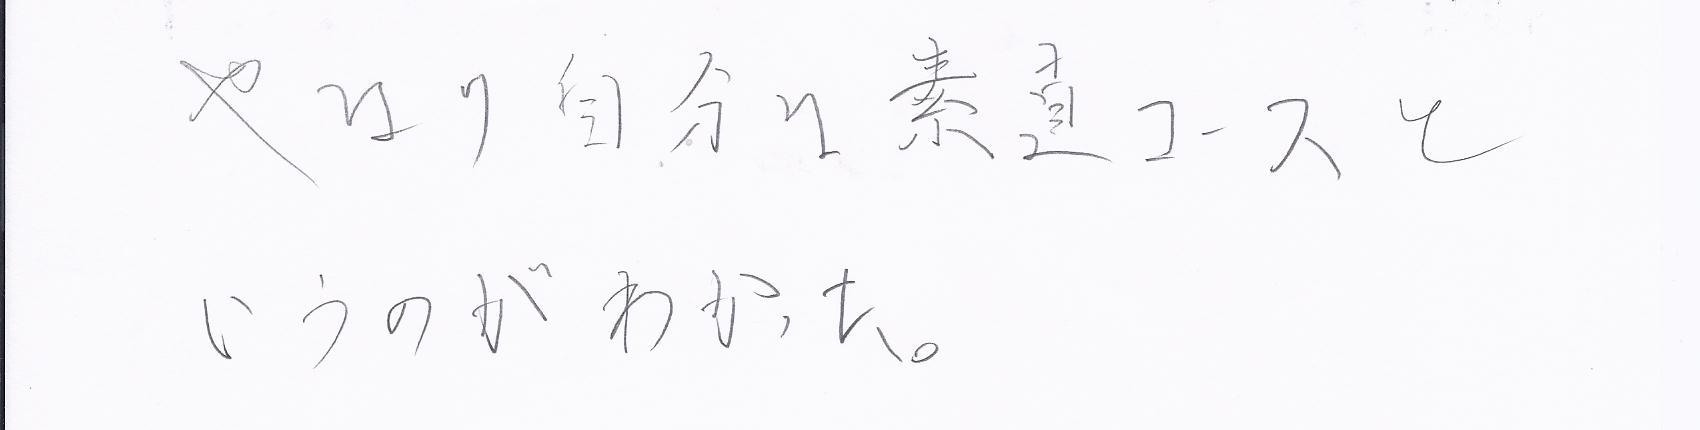 やはり自分に素直コースと
いうのがわかった。